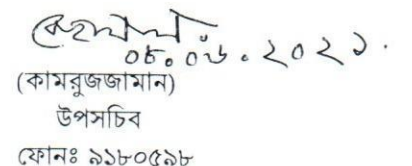 ০৮.০৬.২০২১.
(কামরুজজামান)
উপসচিব
ফোনঃ ৯১৮০৫৯৮